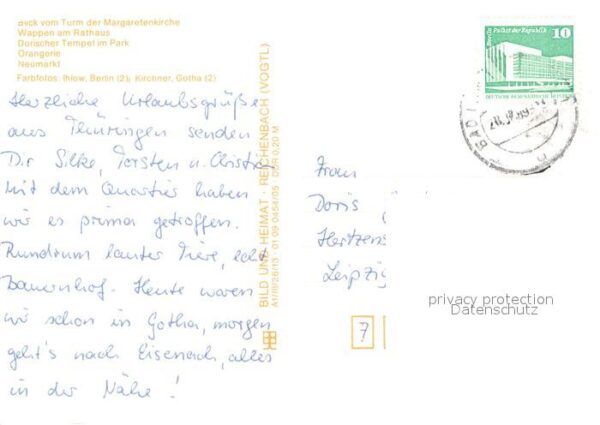 Blick vom Turm der Margaretenkirche
Wappen am Rathaus
Dorischer Tempel im Park
Orangerie
Neumarkt
Farbfotos: Ihlow, Berlin (2), Kirchner, Gotha (2)
Herzliche Urlaubsgrüße
aus Thüringen senden
Dir Silke, Torsten u. Christian
Mit dem Quartier haben
wir es prima getroffen.
Rundrum lauter Tiere, echt
Bauernhof. Heute waren
wir schon in Gotha, morgen
geht's nach Eisenach, alles
in der Nähe!
BILD UND HEIMAT REICHENBACH (VOGTL)
A1/III/26/13 01 09 0454/05 DVR 0,20 M
Berlin Palast der Republik
10
DEUTSCHE DEMOKRATISCHE REPUBLIK
Frau
Doris
Leipzig
7
privacy protection
Datenschutz